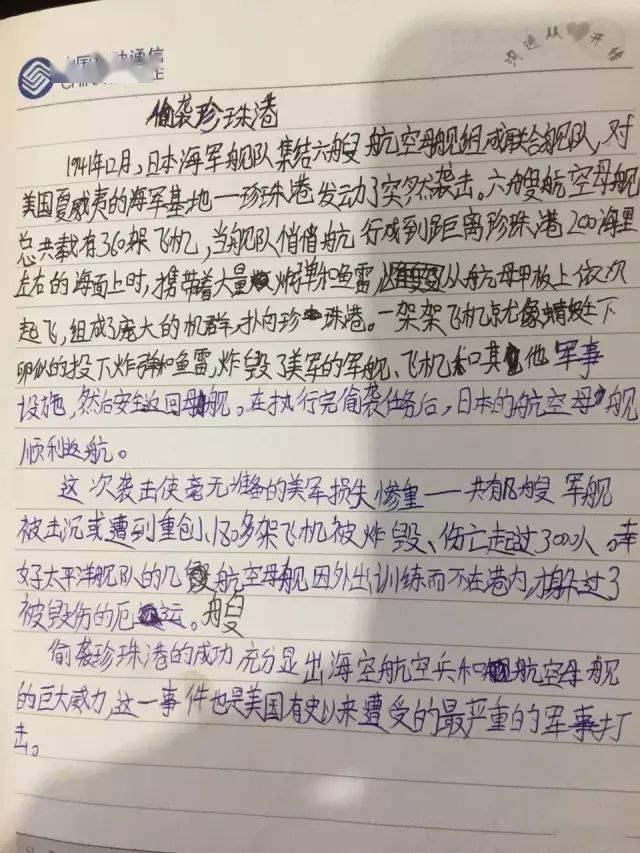 中国移动通信
CHINA MOBILE
沟通从心开始
偷袭珍珠港
1941年12月,日本海军舰队集结六艘航空母舰组成联合舰队,对
美国夏威夷的海军基地一珍珠港发动了突然袭击。六艘航空母舰
总共载有360架飞机,当舰队悄悄航行成到距离珍珠港200海里
左右的海面上时,携带着大量炸弹和鱼雷,从航母甲板上依次
起飞,组成了庞大的机群,扑向珍珠港。一架架飞机就像蜻蜓下
卵似的投下炸弹和鱼雷,炸毁了美军的军舰、飞机和其他军事
设施,然后安全返回母舰。在执行完偷袭任务后,日本的航空母舰
顺利返航。
这次袭击使毫无准备的美军损失惨重——共有18艘军舰
被击沉或遭到重创、180多架飞机被炸毁、伤亡超过3000人。幸
好太平洋舰队的几航空母舰因外出训练而不在港内,才躲过了
被毁伤的厄运。艘
偷袭珍珠港的成功充分显出海空航空兵和航空母舰
的巨大威力,这一事件也是美国有史以来遭受的最严重的军事打
击。